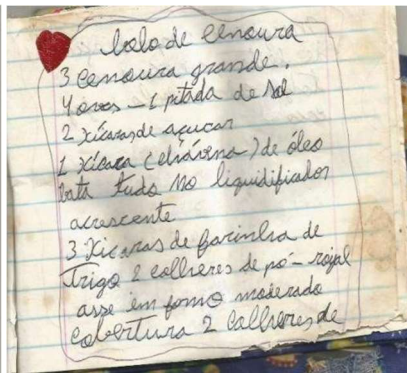 bolo de cenoura
3 cenoura grande.
4 ovos - 1 pitada de sal
2 xícaras de açucar
1 xícara (chávena) de óleo
bata tudo no liquidificador
acrescente
3 xicaras de farinha de
trigo 2 colheres de pó-royal
asse em forno moderado
cobertura 2 colheres de